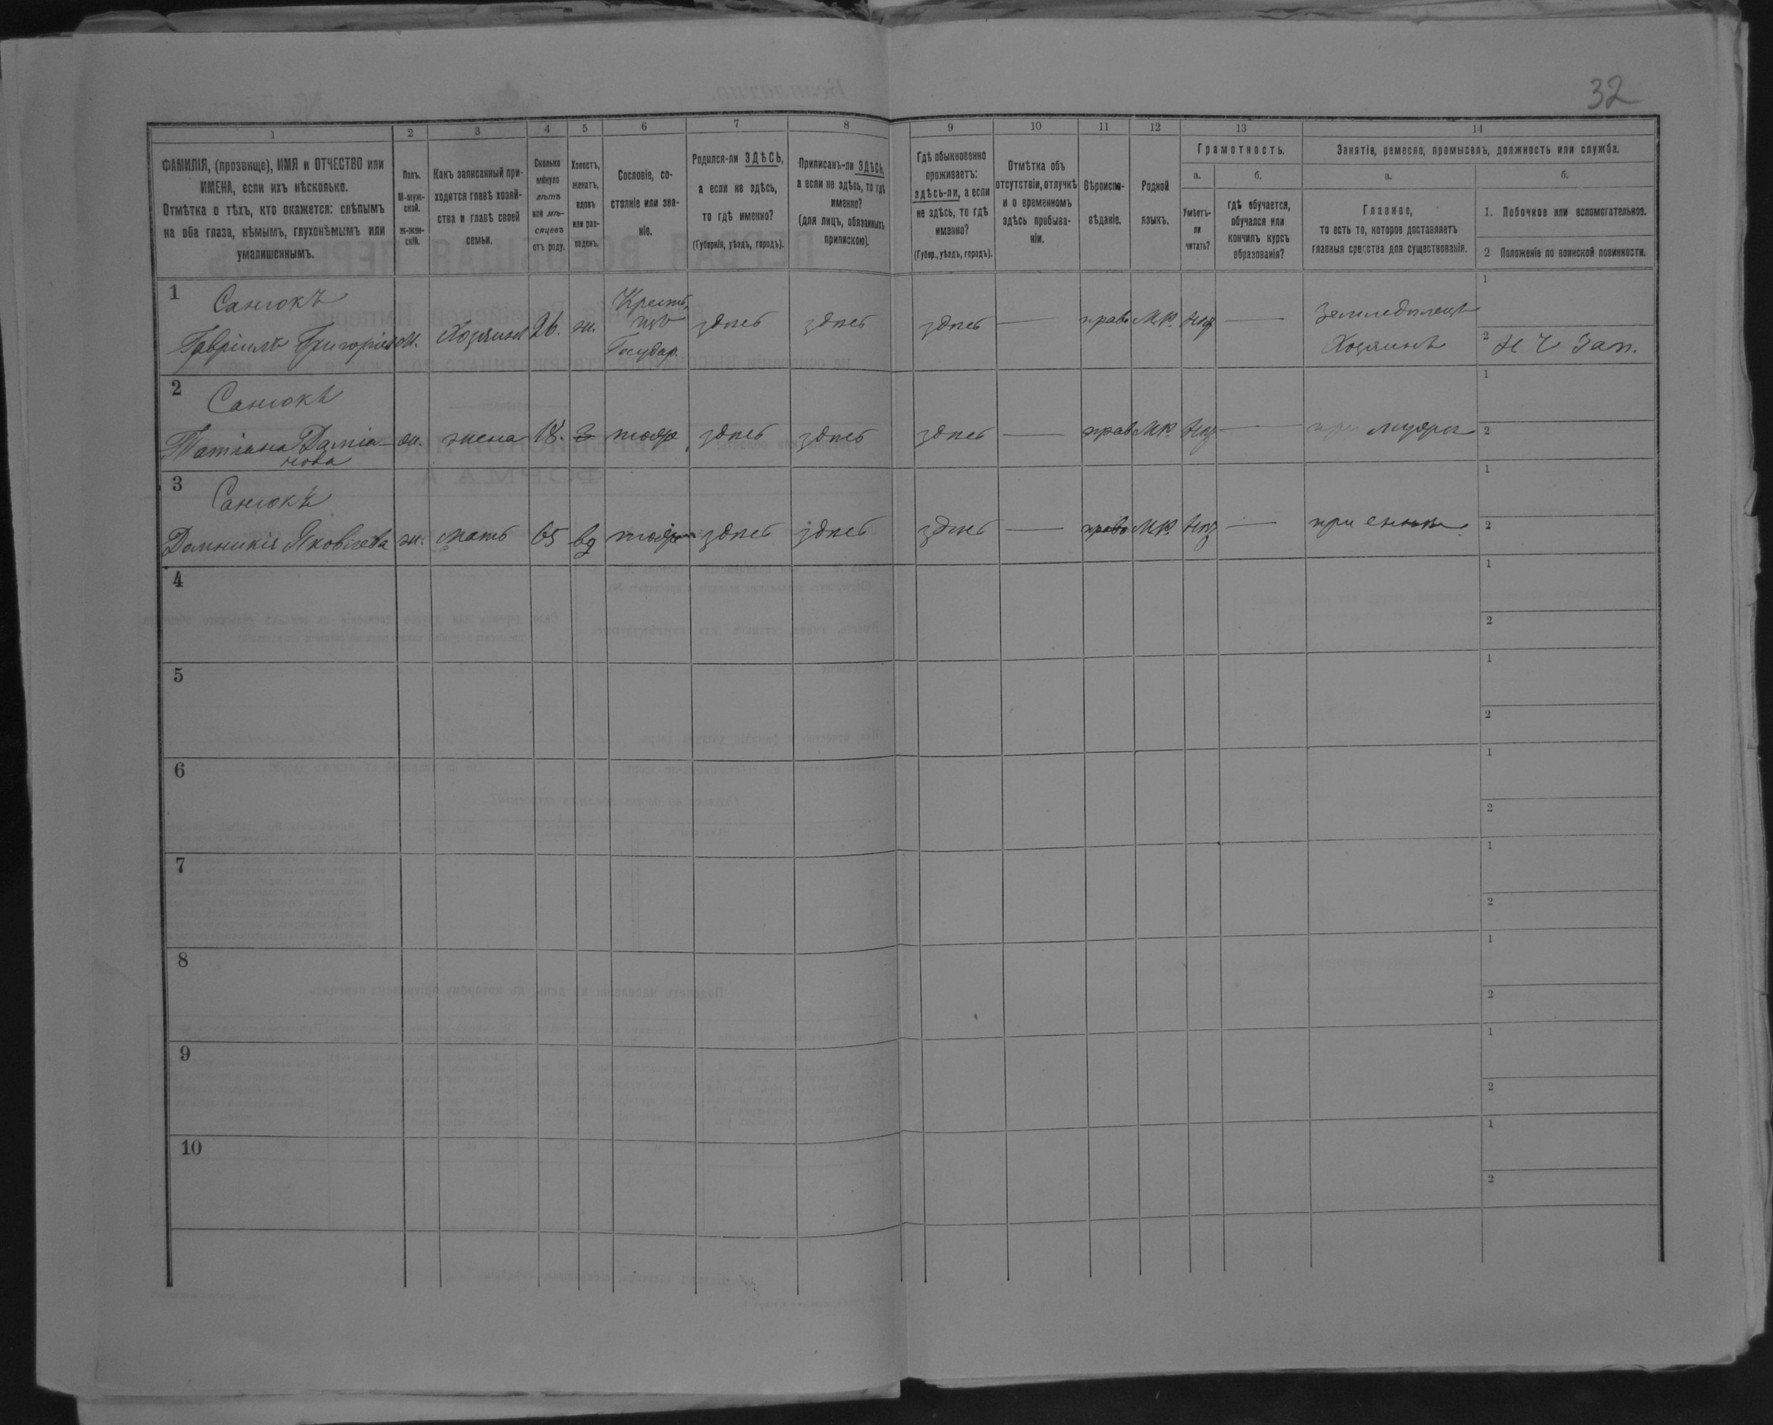 32
1 2 3 4 5 6 7 8 9 10 11 12 13 14
ФАМИЛІЯ, (прозвище), ИМЯ и ОТЧЕСТВО или
ИМЕНА, если ихъ нѣсколько.
Отмѣтка о тѣхъ, кто окажется: слѣпымъ
на оба глаза, нѣмымъ, глухонѣмымъ или
умалишеннымъ.
Полъ.
М-муж-
ской.
ж-жен-
скій.
Какъ записанный при-
ходится главѣ хозяй-
ства и главѣ своей
семьи.
Сколько
минуло
лѣтъ
или мѣ-
сяцевъ
отъ роду.
Холостъ,
женатъ,
вдовъ
или раз-
веденъ.
Сословіе, со-
стояніе или зва-
ніе.
Родился-ли ЗДѢСЬ,
а если не здѣсь,
то гдѣ именно?
(Губернія, уѣздъ, городъ).
Приписанъ-ли ЗДѢСЬ,
а если не здѣсь, то гдѣ
именно?
(для лицъ, обязанныхъ
припискою).
Гдѣ обыкновенно
проживаетъ:
здѣсь-ли, а если
не здѣсь, то гдѣ
именно?
(Губер., уѣздъ, городъ).
Отмѣтка объ
отсутствіи, отлучкѣ
и о временномъ
здѣсь пребыва-
ніи.
Вѣроиспо-
вѣданіе.
Родной
языкъ.
Грамотность.
а.
Умѣетъ-
ли
читать?
б.
гдѣ обучается,
обучался или
кончилъ курсъ
образованія?
Занятія, ремесло, промыселъ, должность или служба.
а.
Главное,
то есть то, которое доставляетъ
главныя средства для существованія.
б.
1. Побочное или вспомогательное.
2 Положеніе по воинской повинности.
1 Санюкъ Крестья 1
Гавріилъ Григорьевъ м. Хозяинъ 26. ж. здѣсь здѣсь здѣсь — прав. нѣт — Земледѣлецъ
Государ Хозяинъ 2 Н Ч Зап.
2 Санюкъ 1
Татіана Даміа- ж. жена 18. з тоже здѣсь здѣсь здѣсь — прав нѣт — при мужѣ 2
нова
3 Санюкъ 1
Домникія Яковлева ж. мать 65 вд тоже здѣсь здѣсь здѣсь — прав нѣт — при сынѣ 2
4 1
2
5 1
2
6 1
2
7 1
2
8 1
2
9 1
2
10 1
2